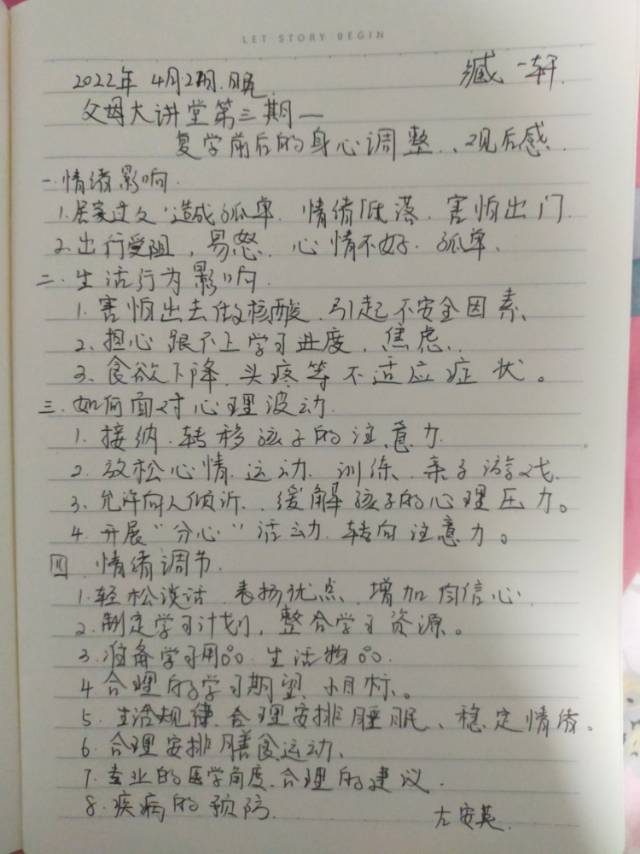 LET STORY BEGIN
臧一轩
2022年4月2 日晚
父母大讲堂第三期—
复学前后的身心调整、观后感
一.情绪影响
1.居家过久 造成孤单、情绪低落、害怕出门
2.出行受阻,易怒、心情不好、孤单、
二、生活行为影响
1. 害怕出去做核酸、引起不安全因素、
2、担心跟不上学习进度、焦虑、
3、食欲下降、头疼等不适应症状。
三、如何面对心理波动
1. 接纳、转移孩子的注意力
2. 放松心情、运动、训练、亲子游戏、
3、允许向人倾诉、缓解孩子的心理压力。
4. 开展“分心”活动、转向注意力。
四、情绪调节
1.轻松谈话、表扬优点、增加自信心、
2.制定学习计划,整合学习资源。
3.准备学习用品、生活物品
4 合理的学习期望、小目标。
5. 生活规律、合理安排睡眠、稳定情绪。
6. 合理安排膳食运动、
7. 专业的医学角度、合理的建议.
8.疾病的预防.
左安英